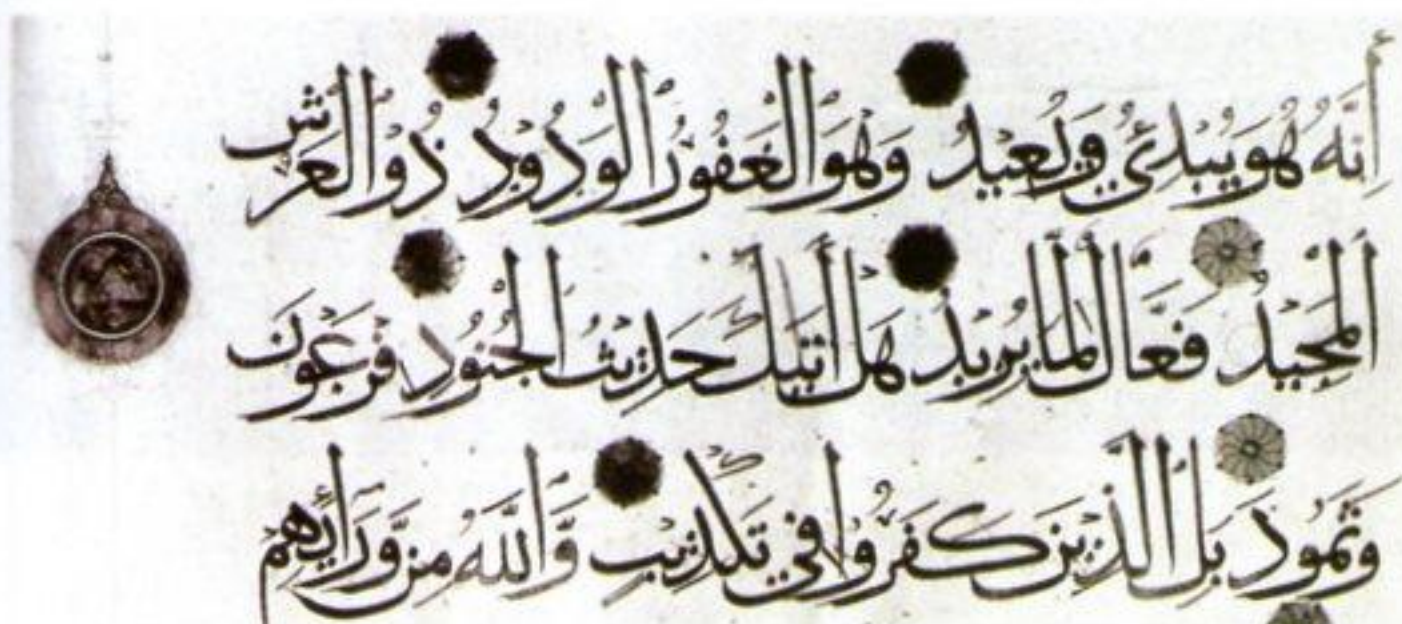 أَنَّهُ هُوَ يُبْدِئُ وَيُعِيْدُ وَهُوَ الْغَفُوْرُ الْوَدُوْدُ ذُوْ الْعَرْشِ
الْمَجِيْدُ فَعَّالٌ لِّمَا يُرِيْدُ هَلْ أَتَىٰكَ حَدِيْثُ الْجُنُوْدِ فِرْعَوْنَ
وَثَمُوْدَ بَلِ الَّذِيْنَ كَفَرُوْا فِي تَكْذِيْبٍ وَّاللَّهُ مِنْ وَّرَائِهِمْ